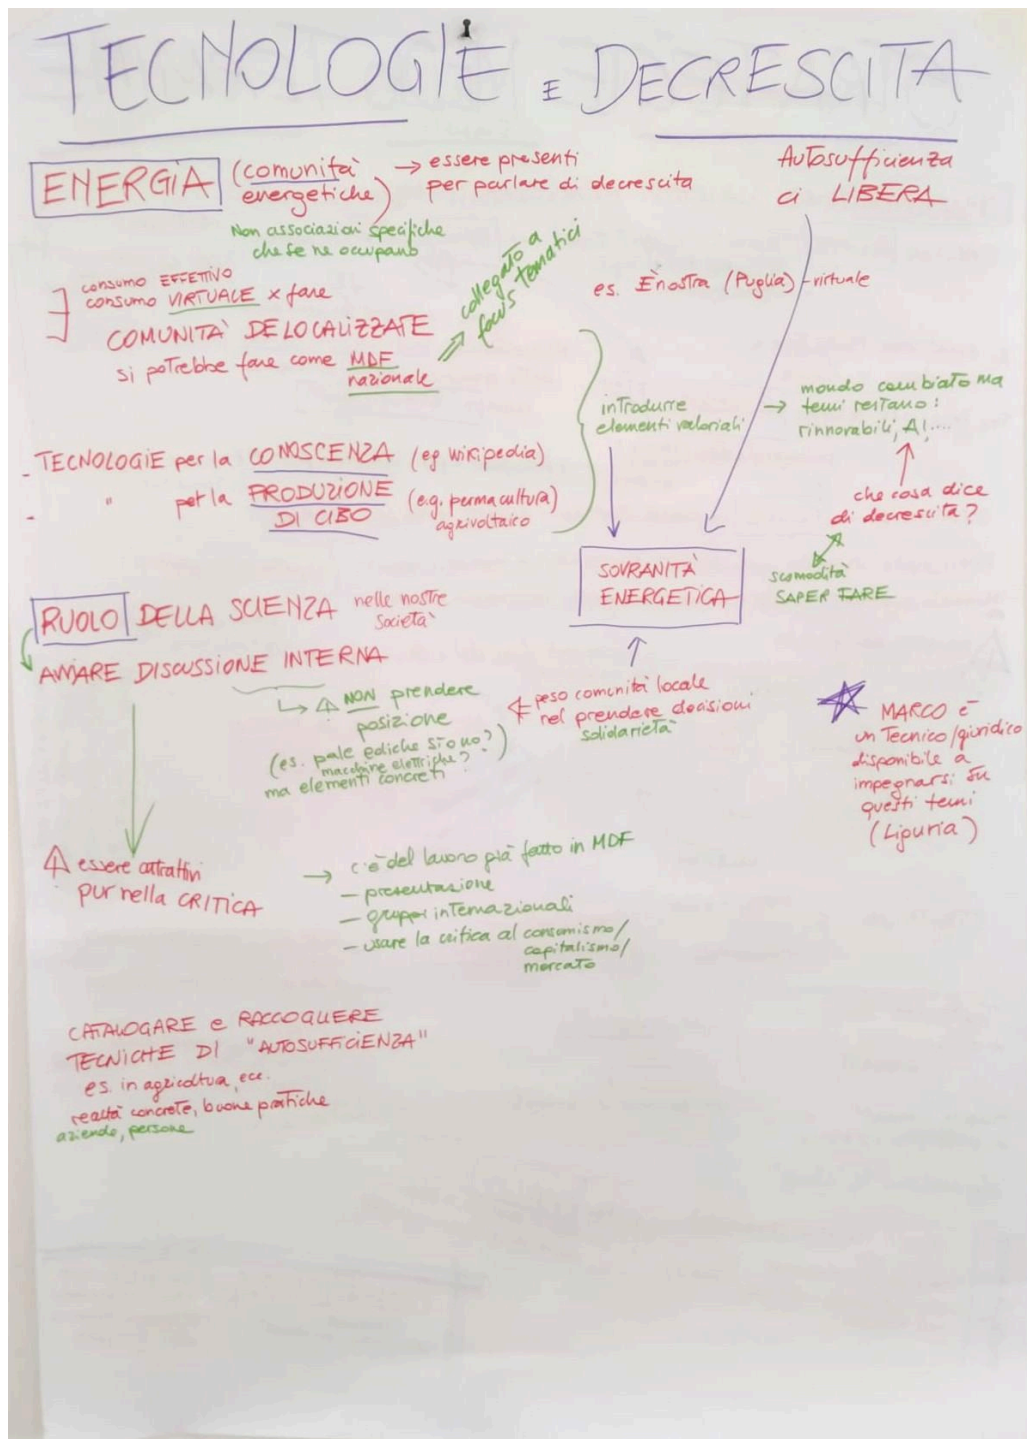 TECNOLOGIE E DECRESCITA
ENERGIA (comunità
energetiche)
→ essere presenti
per parlare di decrescita
Non associazioni specifiche
che se ne occupano
Autosufficienza
ci LIBERA
consumo EFFETTIVO
consumo VIRTUALE x fare
COMUNITÀ DELOCALIZZATE
si potrebbe fare come MDF
nazionale
collegato a
focus tematici
es. Ènostra (Puglia) - virtuale
introdurre
elementi valoriali
→ mondo cambiato ma
temi restano:
rinnovabili, AI, ....
che cosa dice
di decrescita?
scomodità
SAPER FARE
- TECNOLOGIE per la CONOSCENZA (eg Wikipedia)
- " per la PRODUZIONE
DI CIBO
(e.g. permacultura)
agrivoltaico
SOVRANITÀ
ENERGETICA
peso comunità locale
nel prendere decisioni
solidarietà
RUOLO DELLA SCIENZA nelle nostre
società
AVVIARE DISCUSSIONE INTERNA
NON prendere
posizione
(es. pale eoliche sì o no?
macchine elettriche?)
ma elementi concreti
MARCO è
un Tecnico/giuridico
disponibile a
impegnarsi su
questi temi
(Liguria)
essere attrattivi
pur nella CRITICA
→ c'è del lavoro già fatto in MDF
- presentazione
- gruppi internazionali
- usare la critica al consumismo/
capitalismo/
mercato
CATALOGARE e RACCOGLIERE
TECNICHE DI "AUTOSUFFICIENZA"
es. in agricoltura, ecc.
realtà concrete, buone pratiche
aziende, persone